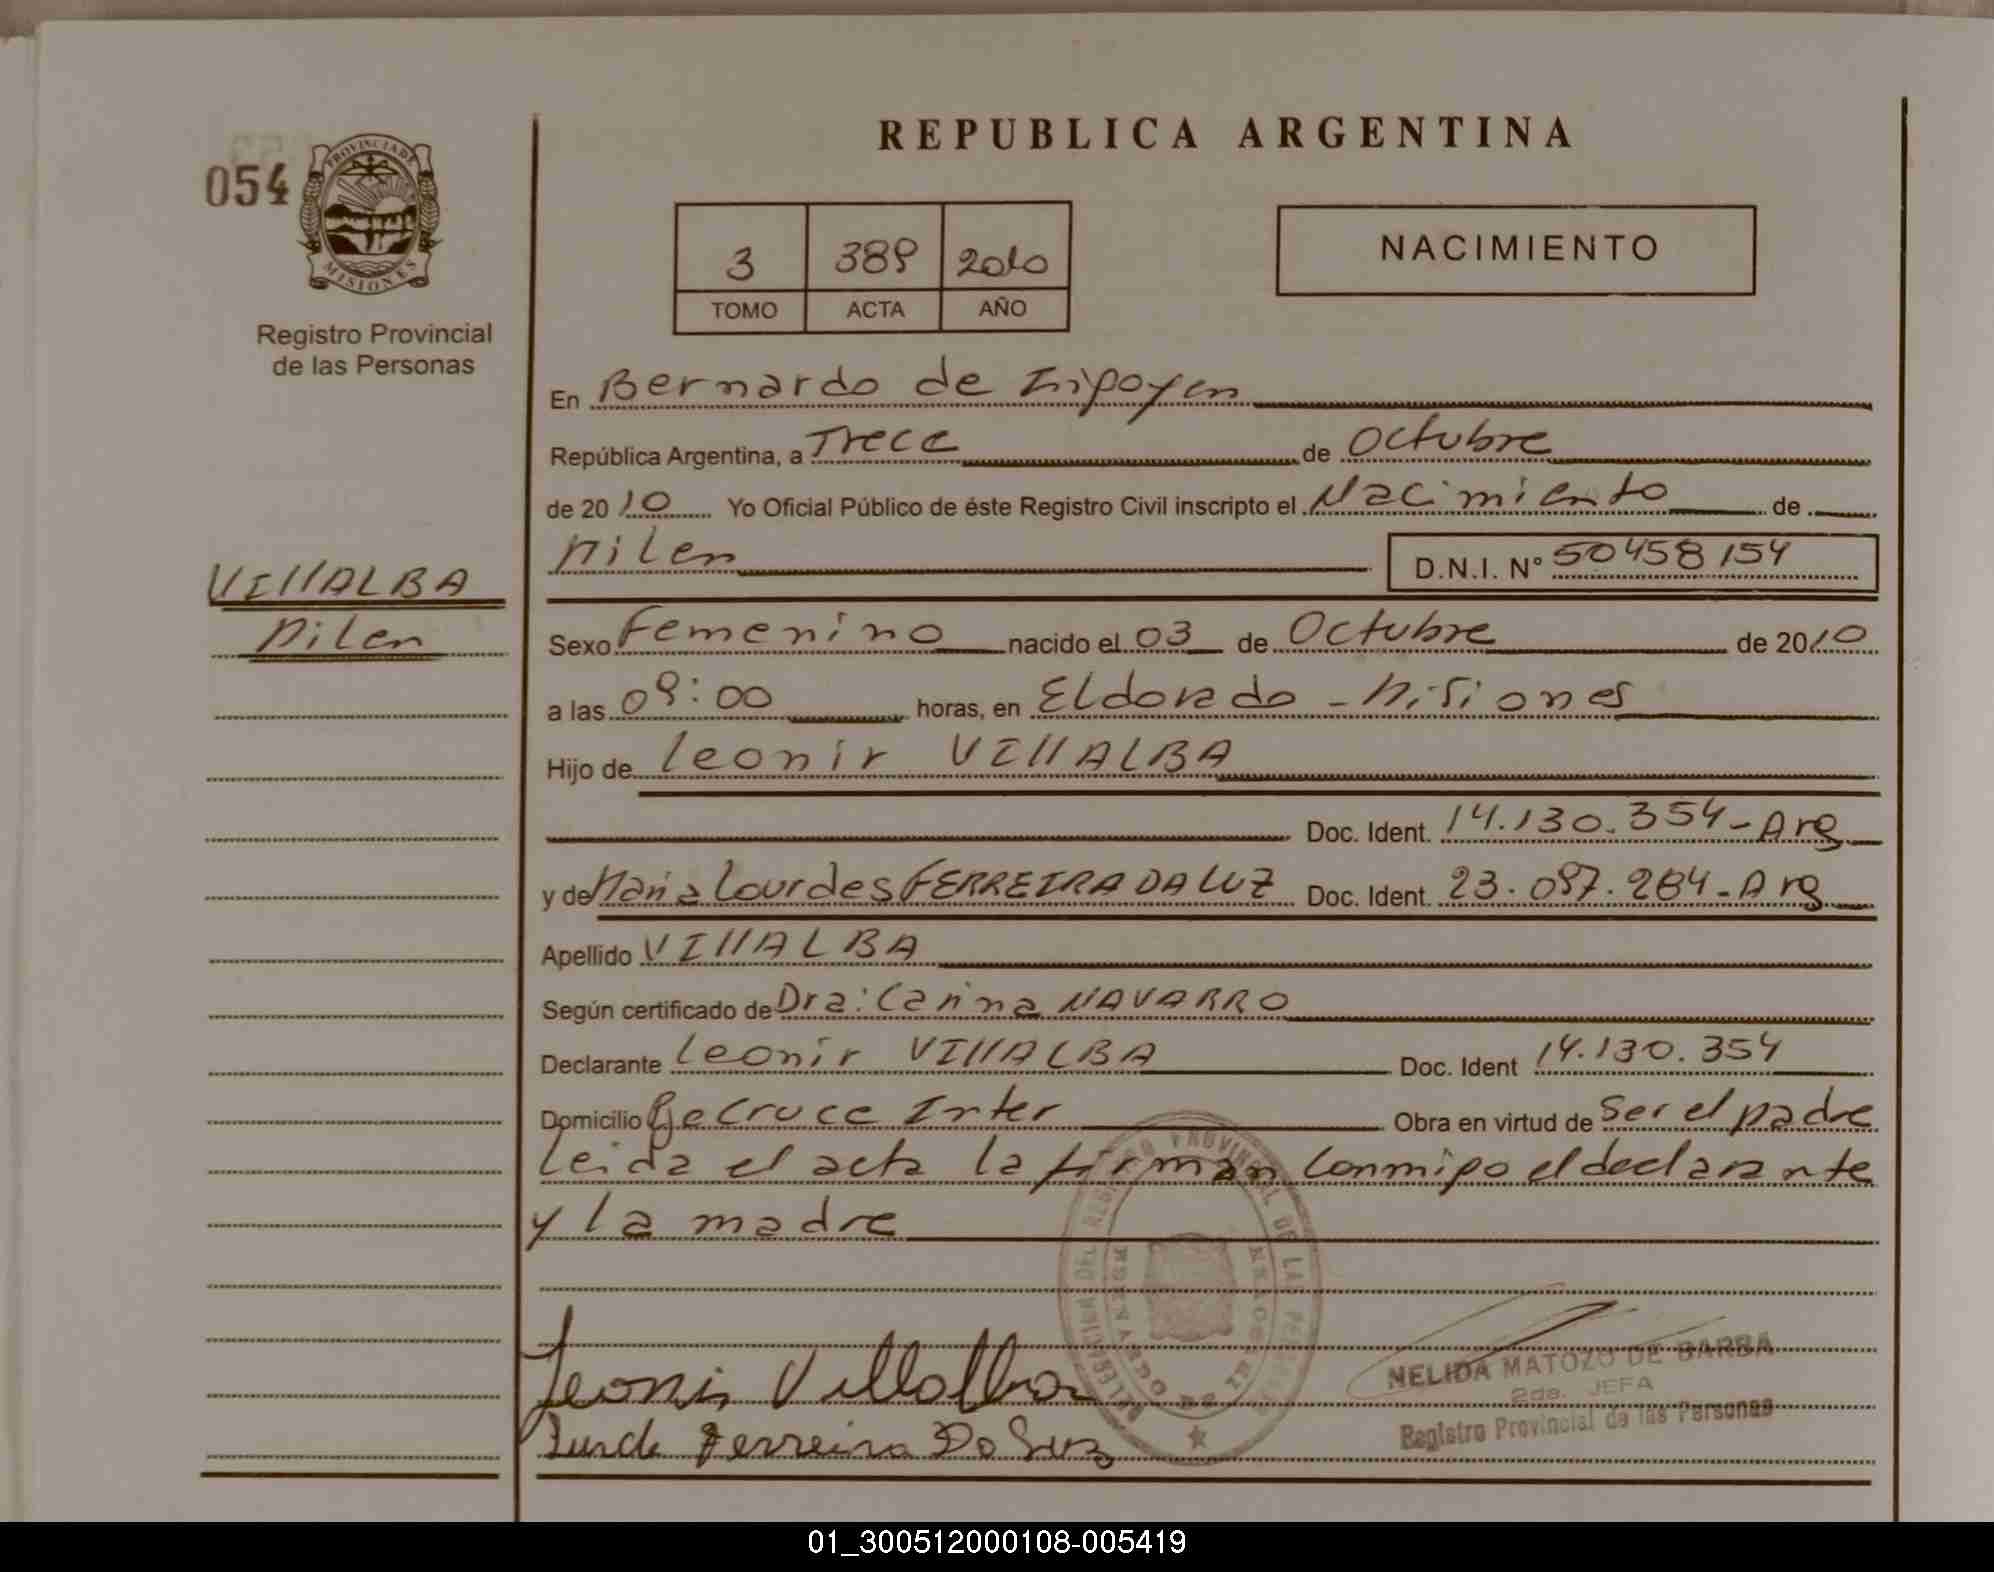 REPUBLICA ARGENTINA
054
PROVINCIA DE
MISIONES
Registro Provincial
de las Personas
3 389 2010
TOMO ACTA AÑO
NACIMIENTO
En Bernardo de Irigoyen
República Argentina, a Trece de Octubre
de 2010 Yo Oficial Público de éste Registro Civil inscripto el Nacimiento de
Milen D.N.I. N° 50458154
VIllALBA
Milen
Sexo Femenino nacido el 03 de Octubre de 2010
a las 09:00 horas, en Eldorado - Misiones
Hijo de Leonir VIllALBA
Doc. Ident. 14.130.354 - Arg
y de Maria Lourdes FERREIRA DA LUZ Doc. Ident. 23.097.284 - Arg
Apellido VIllALBA
Según certificado de Dra: Carina NAVARRO
Declarante Leonir VIllALBA Doc. Ident 14.130.354
Domicilio Pje Cruce Inter Obra en virtud de Ser el padre
Leida el acta la firman Conmigo el declarante
y la madre
Leonir Villalba
Ferreira Da Luz
NELIDA MATOZO DE BARBA
2da. JEFA
Registro Provincial de las Personas
01_300512000108-005419